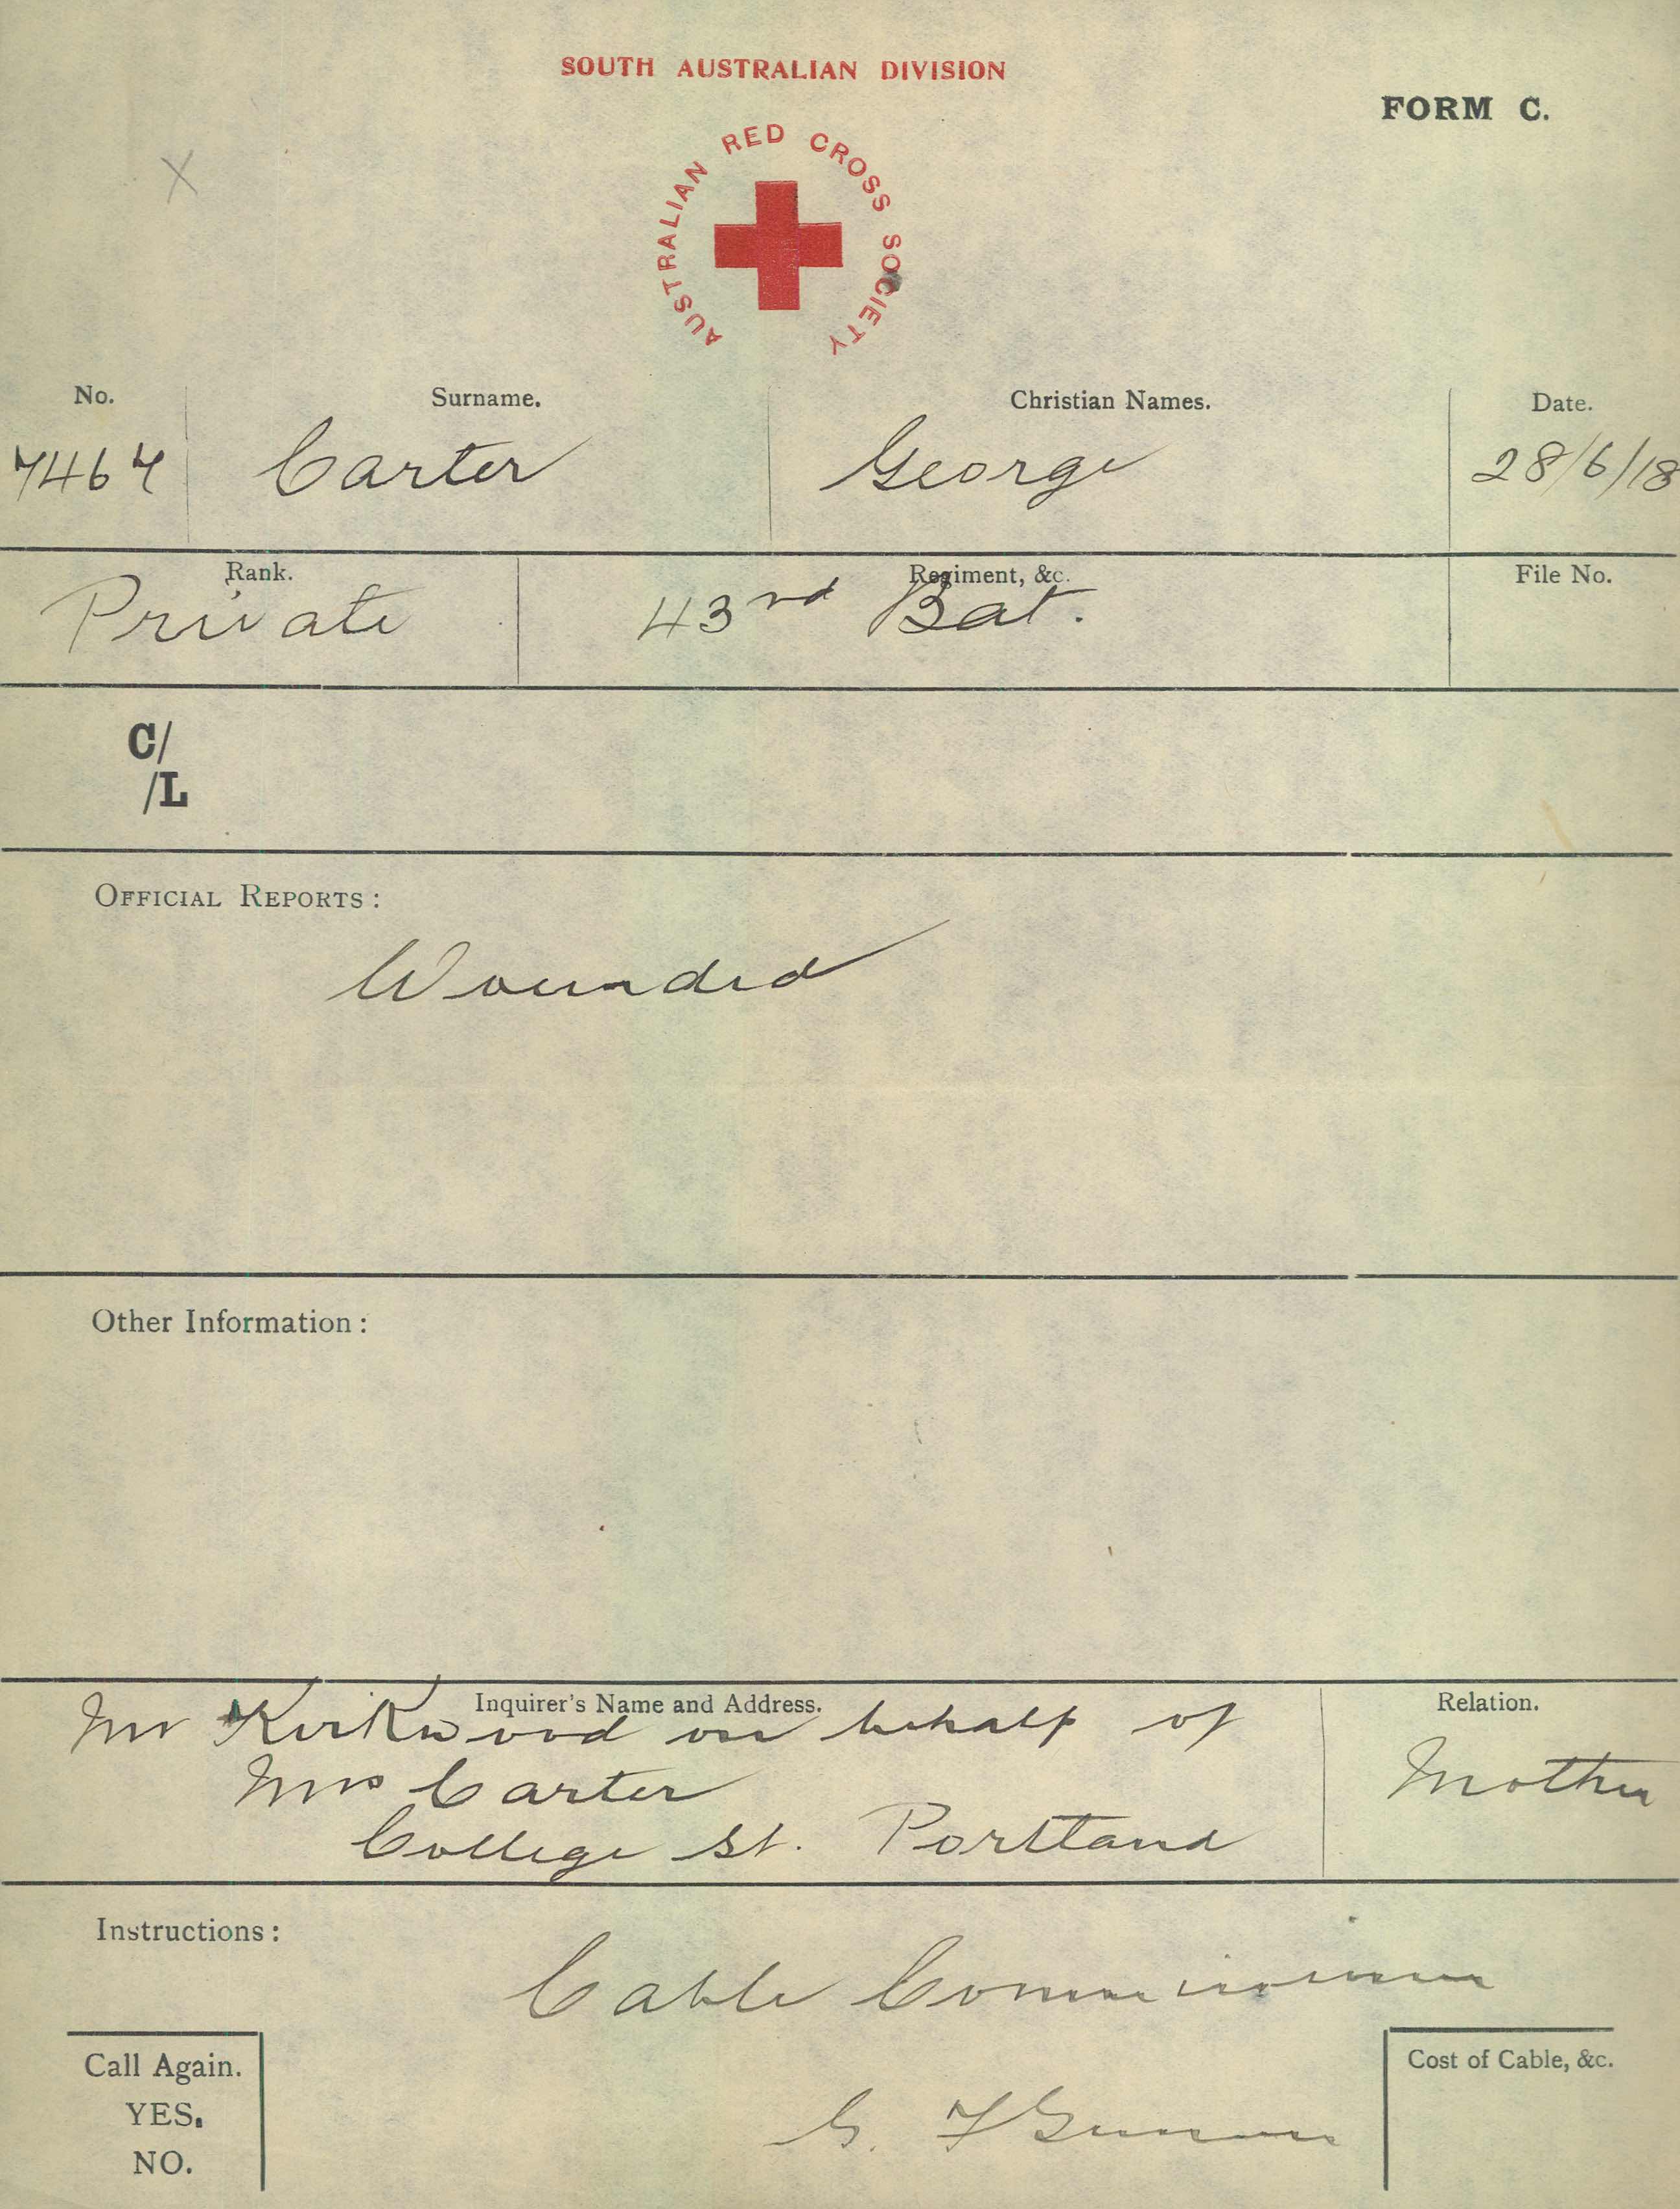 SOUTH AUSTRALIAN DIVISION
FORM C.
X
AUSTRALIAN RED CROSS SOCIETY
No. Surname. Christian Names. Date.
7467 Carter George 28/6/18
Rank. Regiment, &c. File No.
Private 43rd Bat.
C/
/L
OFFICIAL REPORTS:
Wounded
Other Information:
Inquirer's Name and Address. Relation.
Mr Kirkwood on behalf of
Mrs Carter Mother
College St. Portland
Instructions:
Cable Commissioner
Call Again. Cost of Cable, &c.
YES.
G.
NO.